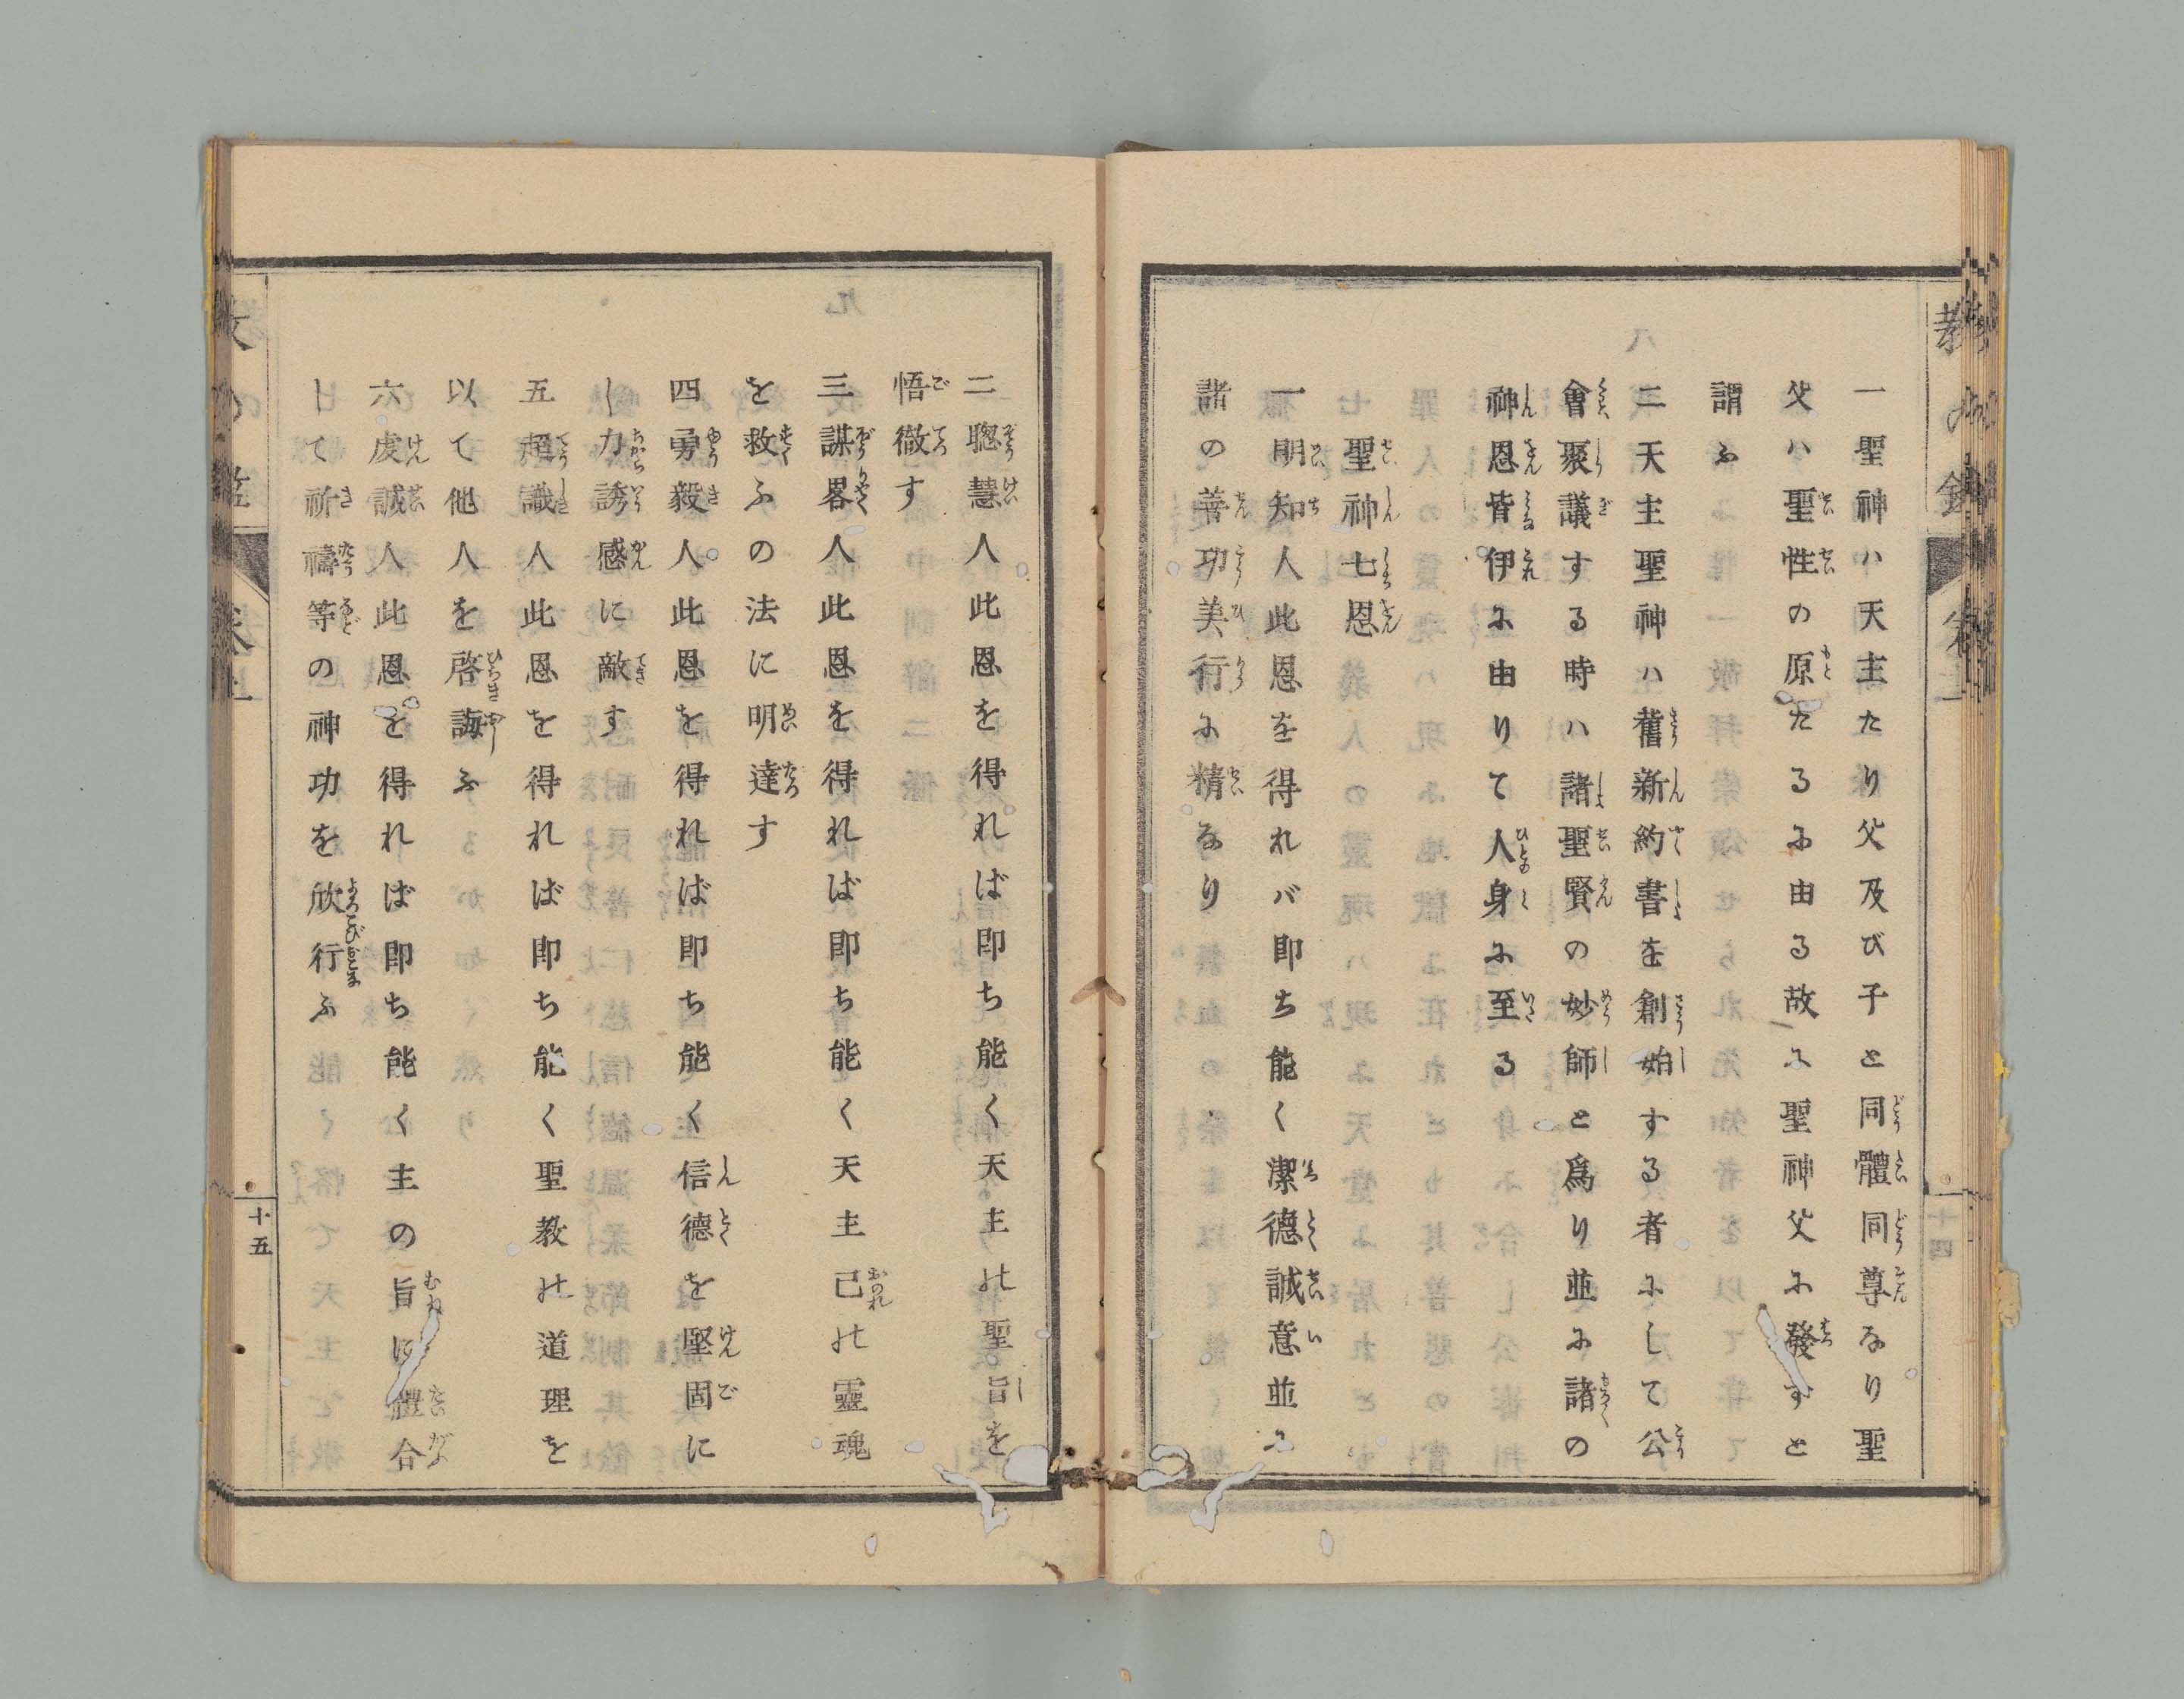 一聖神ハ天主たり父及び子と同體同尊なり聖
父ハ聖性の原たるに由る故に聖神父に發すと
謂ふ
二天主聖神ハ舊新約書を創始する者にして公
會聚議する時ハ諸聖賢の妙師と爲り並に諸の
神恩皆伊に由りて人身に至る
聖神七恩
一明知人此恩を得れバ即ち能く潔德誠意並に
諸の善功美行に精なり
二聰慧人此恩を得れば即ち能く天主の聖旨を
悟徹す
三謀畧人此恩を得れば即ち能く天主己の靈魂
を救ふの法に明達す
四勇毅人此恩を得れば即ち能く信德を堅固に
し力誘感に敵す
五超識人此恩を得れば即ち能く聖教の道理を
以て他人を啓誨ふ
六虔誠人此恩を得れば即ち能く主の旨に體合
して祈禱等の神功を欣行ふ
十五